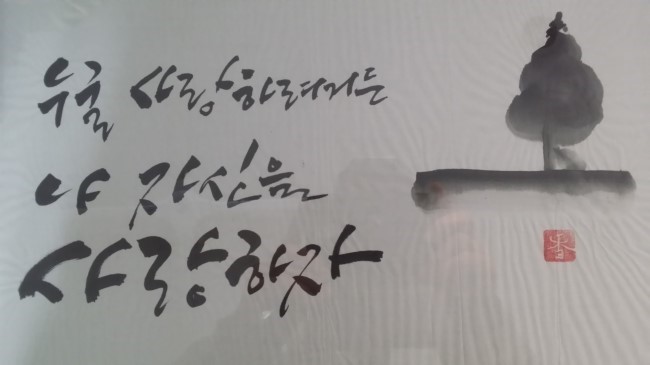 누굴 사랑하려거든
나 자신을
사랑하자